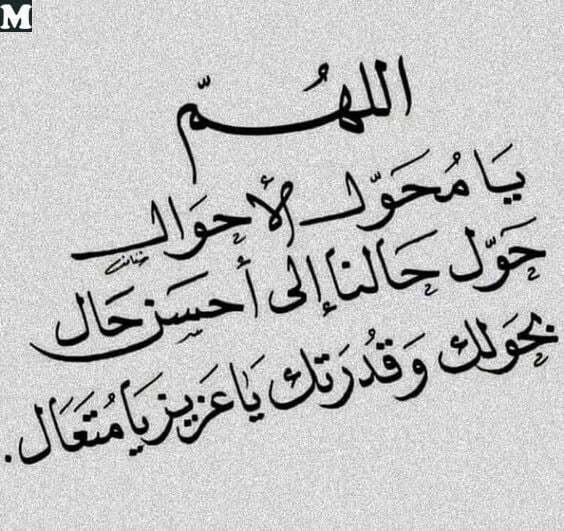 M
اللهُمّ
يَا مُحَوّل الأحوَال
حَوّل حَالنا إلى أحسَن حَال
بحَولك وَقُدرَتك يَا عَزيز يَا مُتعَال.